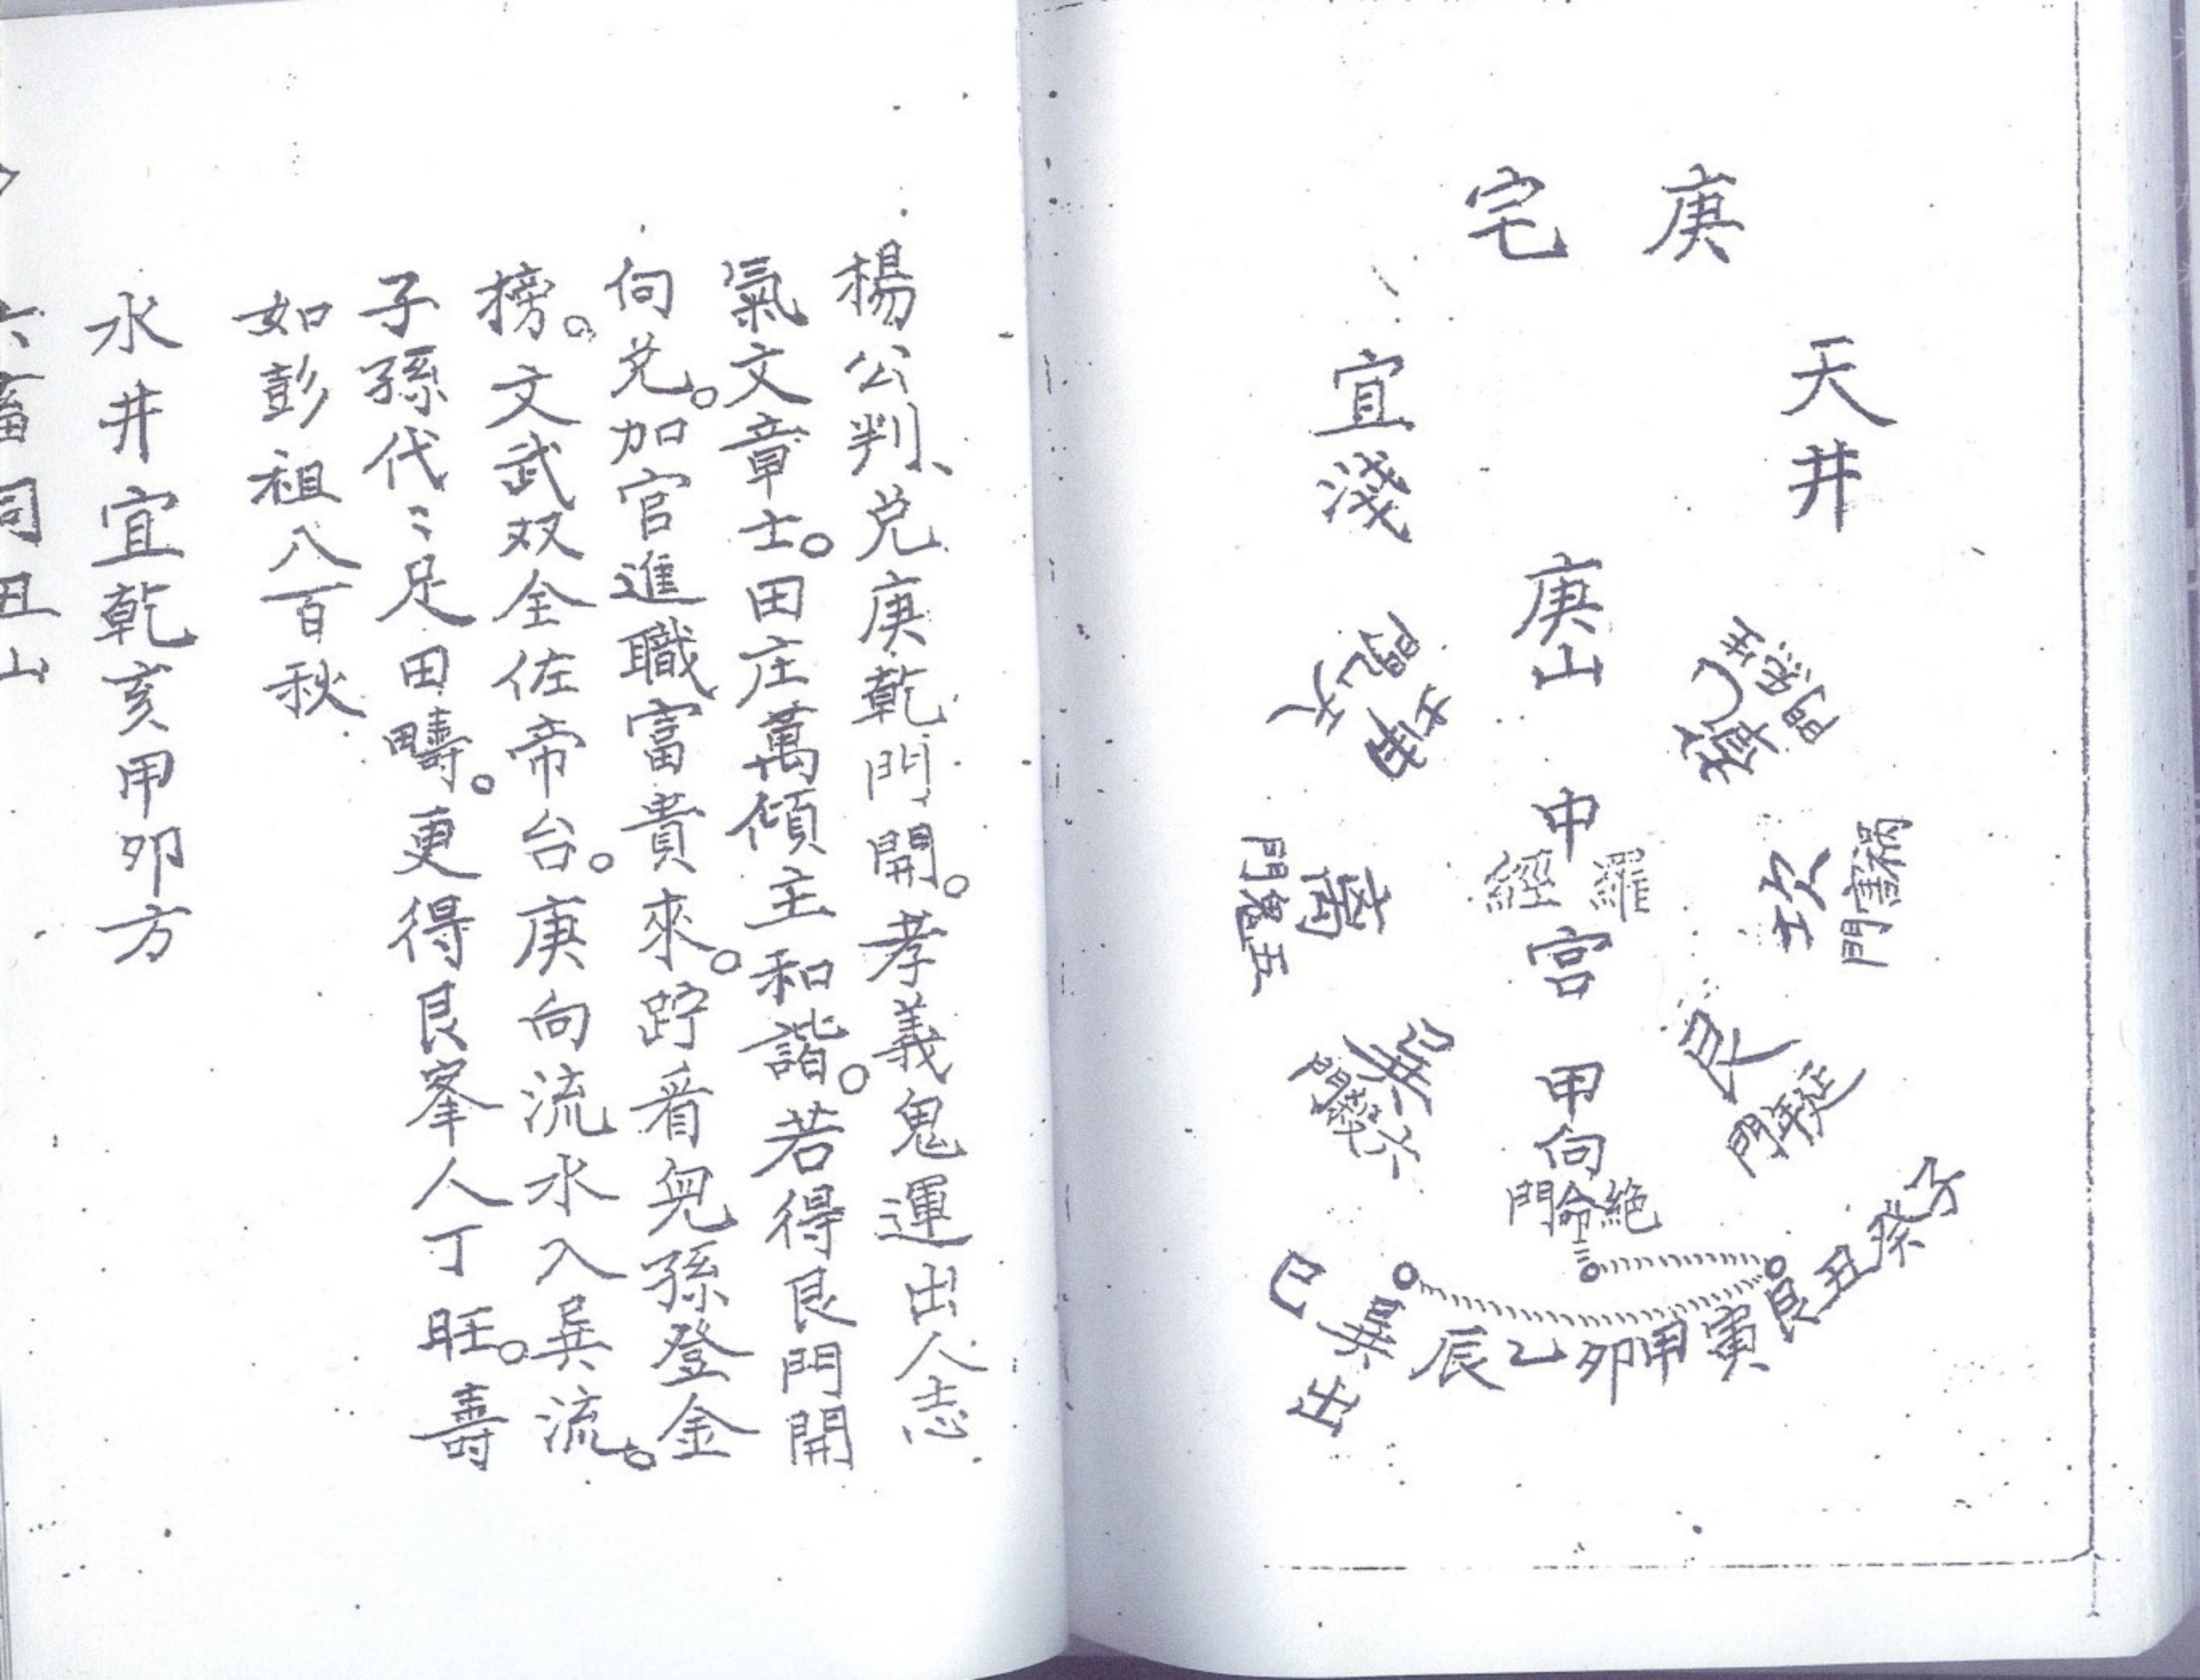 庚宅
天井
宜淺
庚山
乾
生氣門
坤
天
門
中宮
羅經
坎
禍害門
离
五鬼門
艮
延年門
巽
六煞門
甲向
絕命門
子癸丑艮寅甲卯乙辰巽巳
出
楊公判、兌庚乾門開。孝義鬼運出人志
氣文章士。田庄萬傾主和諧。若得艮門開
向兌。加官進職富貴來。貯看兒孫登金
榜。文武双全佐帝台。庚向流水入巽流。
子孫代〻足田疇。更得艮峯人丁旺。壽
如彭祖八百秋
水井宜乾亥甲卯方
六畜同丑山